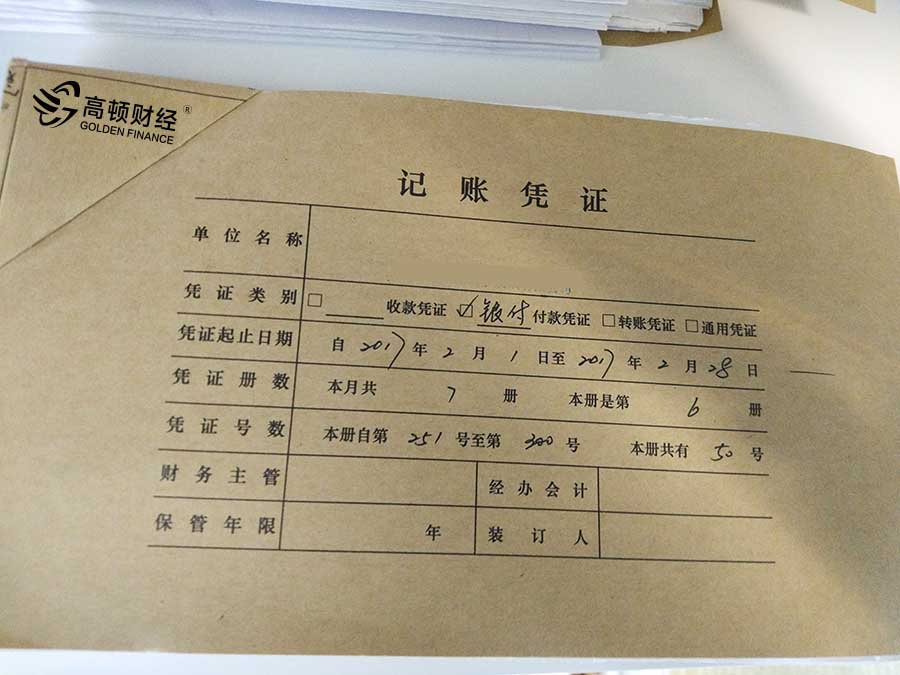 高顿财经®
GOLDEN FINANCE
记账凭证
单位名称
凭证类别 □ 收款凭证 ☑ 银付 付款凭证 □转账凭证 □通用凭证
凭证起止日期 自 2017 年 2 月 1 日至 2017 年 2 月 28 日
凭证册数 本月共 7 册 本册是第 6 册
凭证号数 本册自第 251 号至第 300 号 本册共有 50 号
财务主管 经办会计
保管年限 年 装订人